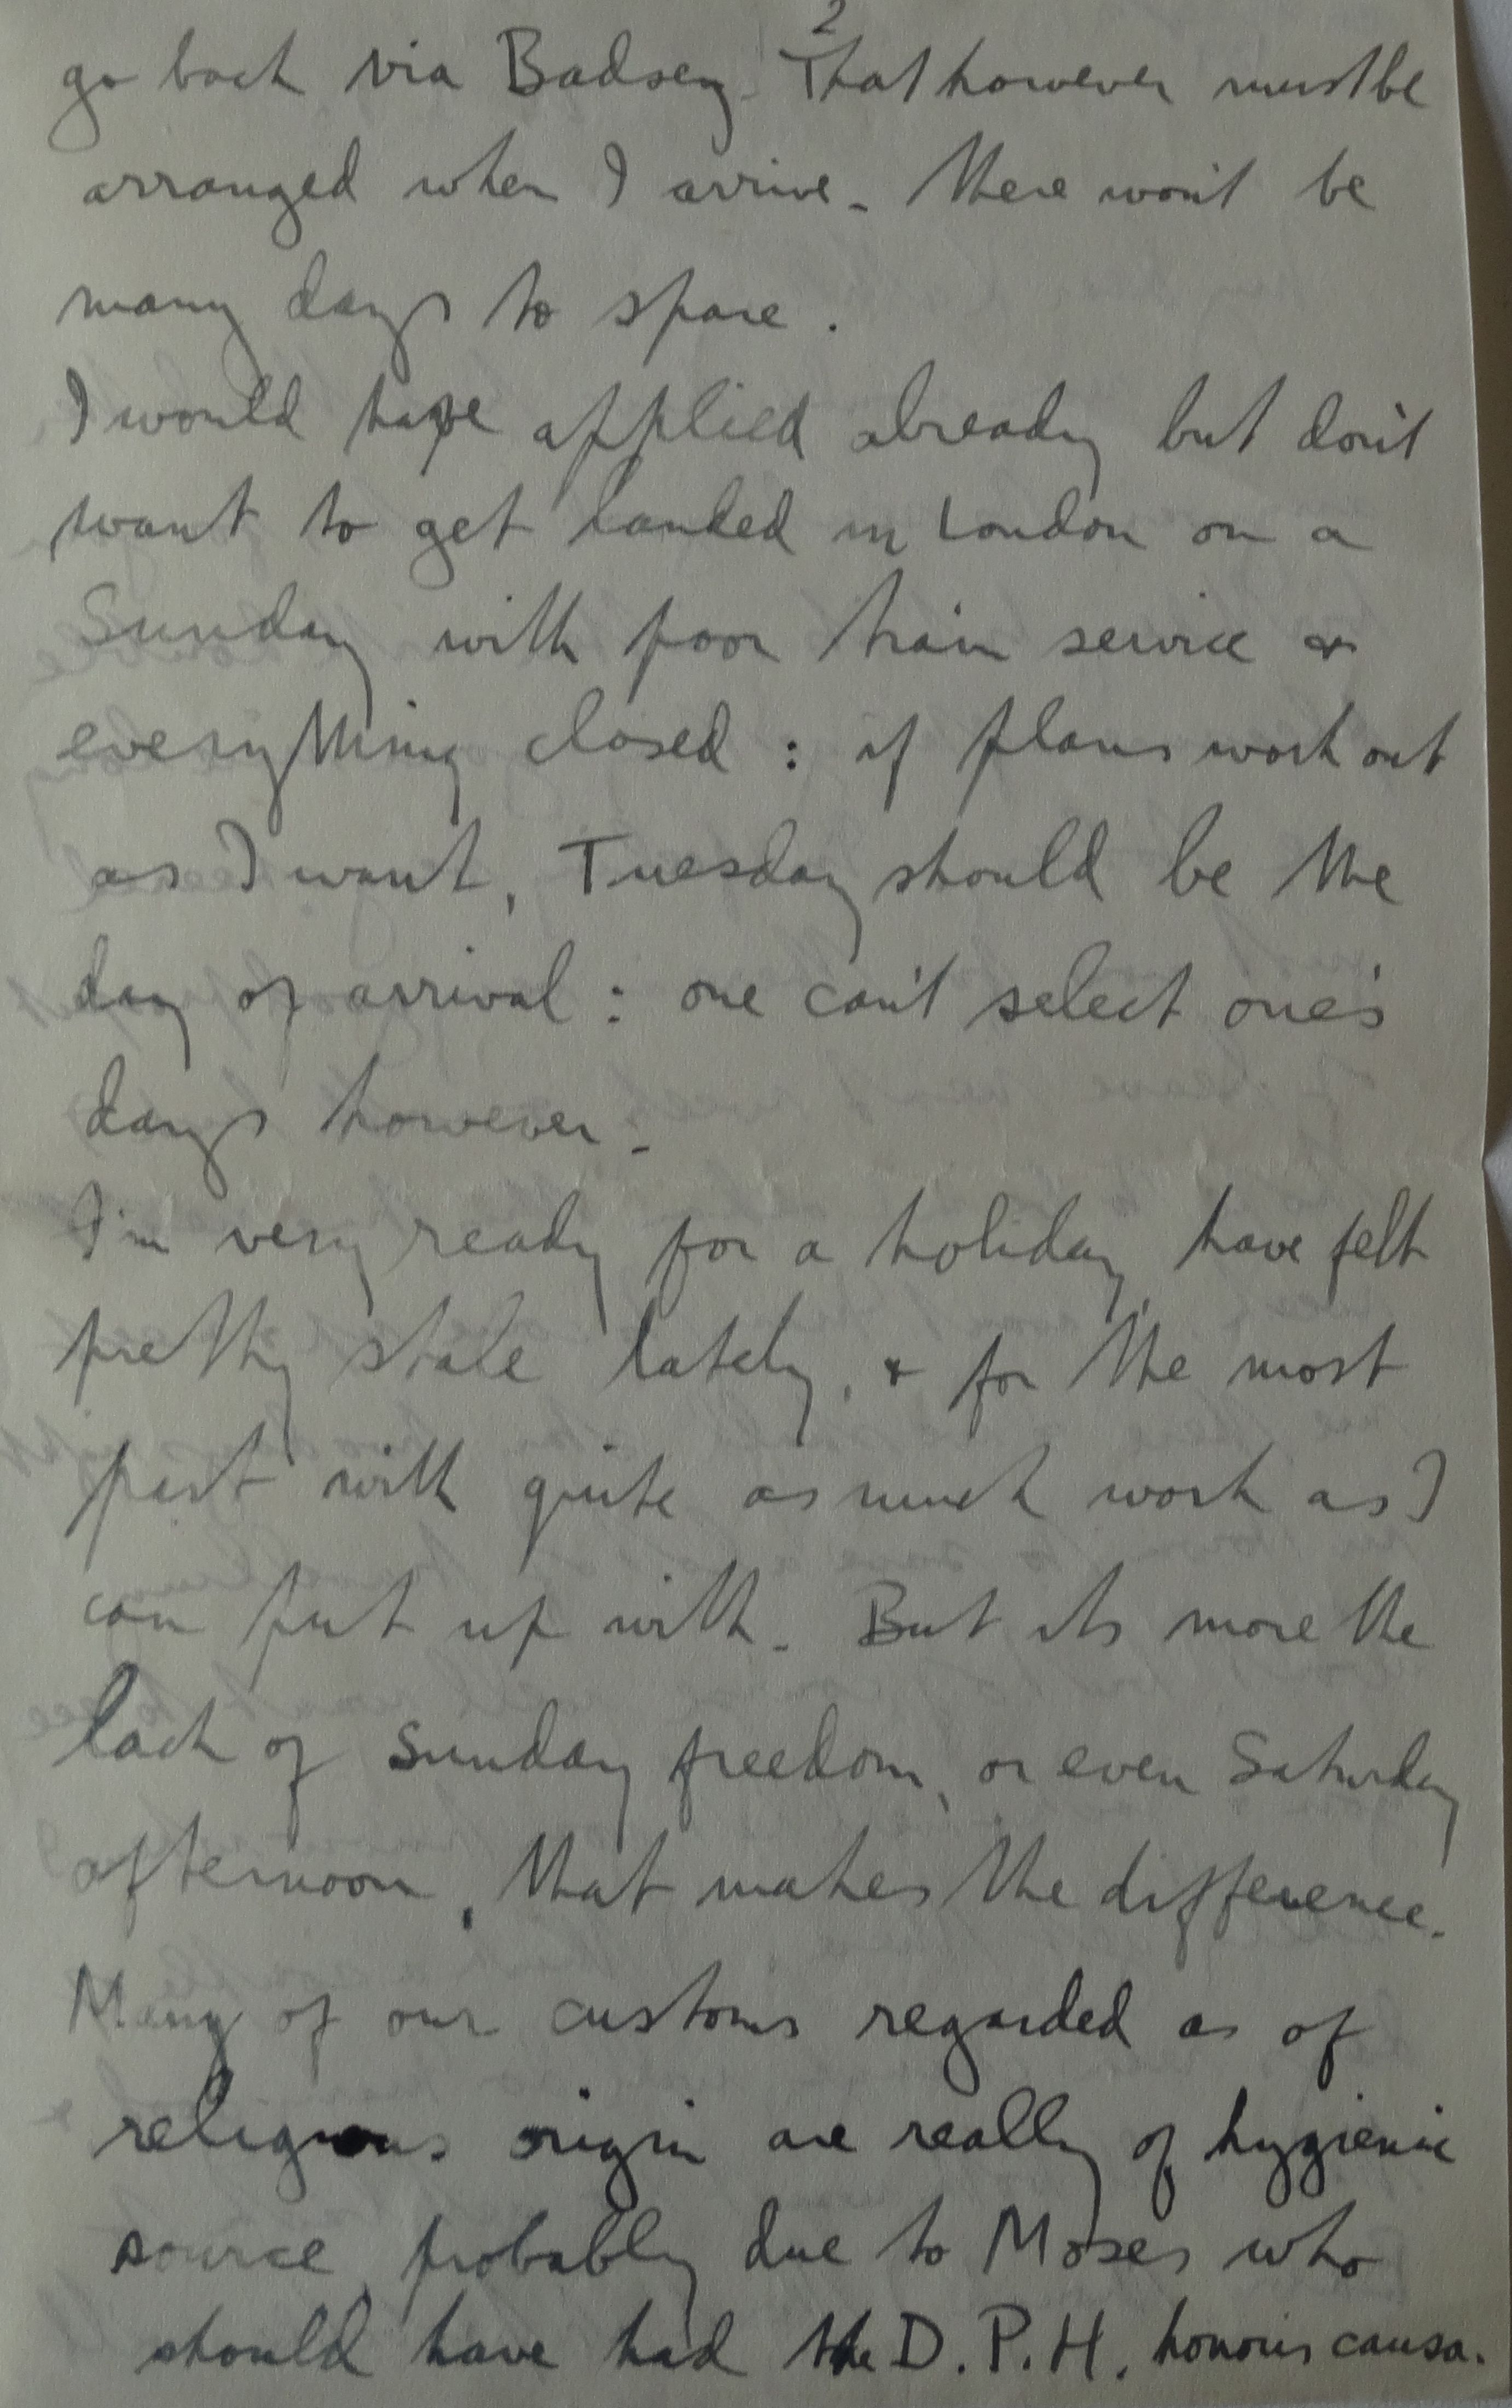 2
go back via Badsey. That however must be
arranged when I arrive. There won't be
many days to spare.
I would have applied already but don't
want to get landed in London on a
Sunday with poor train service &
everything closed : if plans work out
as I want, Tuesday should be the
day of arrival : one can't select one's
days however.
I'm very ready for a holiday, have felt
pretty stale lately, & for the most
part with quite as much work as I
can put up with. But its more the
lack of Sunday freedom, or even Saturday
afternoon, that makes the difference.
Many of our customs regarded as of
religious origin are really of hygienic
source, probably due to Moses who
should have had the D.P.H. honoris causa.